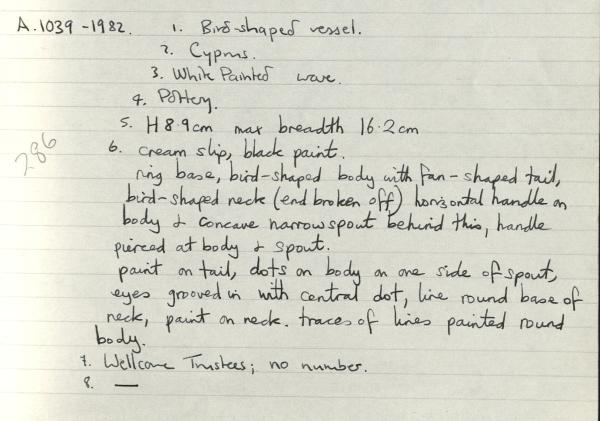 A.1039-1982. 1. Bird-shaped vessel.
2. Cyprus.
3. White Painted ware.
4. Pottery.
5. H 8.9cm max breadth 16.2cm
286
6. cream slip, black paint.
ring base, bird-shaped body with fan-shaped tail,
bird-shaped neck (end broken off) horizontal handle on
body & concave narrow spout behind this, handle
pierced at body & spout.
paint on tail, dots on body on one side of spout,
eyes grooved in with central dot, line round base of
neck, paint on neck. traces of lines painted round
body.
7. Wellcome Trustees; no number.
8. —